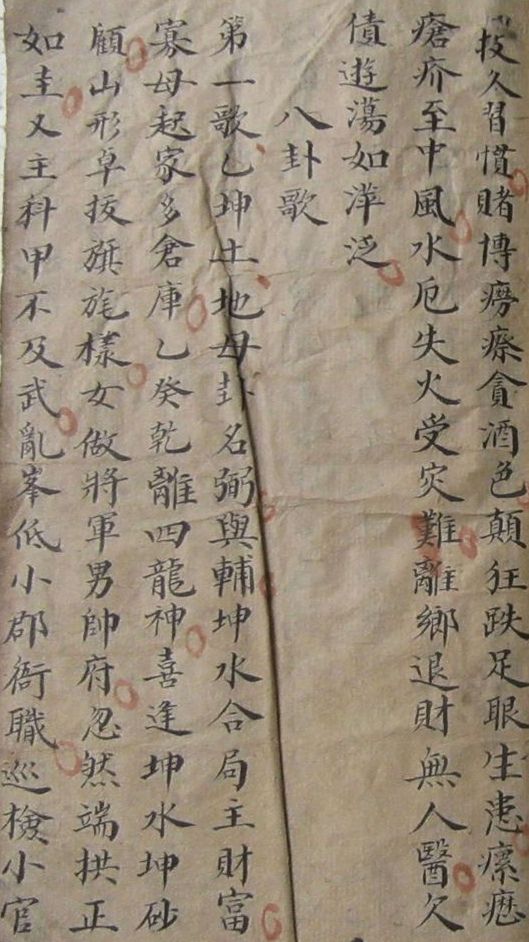 技久習慣賭博癆瘵貪酒色顛狂跌足眼生患瘰
瘡疥至中風水厄失火受災難離鄉退財無人醫欠
債遊蕩如萍泛
八卦歌
第一歌乙坤土地母卦名弼與輔坤水合局主財富
寡母起家多倉庫乙癸乾離四龍神喜逢坤水坤砂
顧山形卓拔旗旄樣女做將軍男帥府忽然端拱正
如圭又主科甲不及武亂峯低小郡衙職巡檢小官